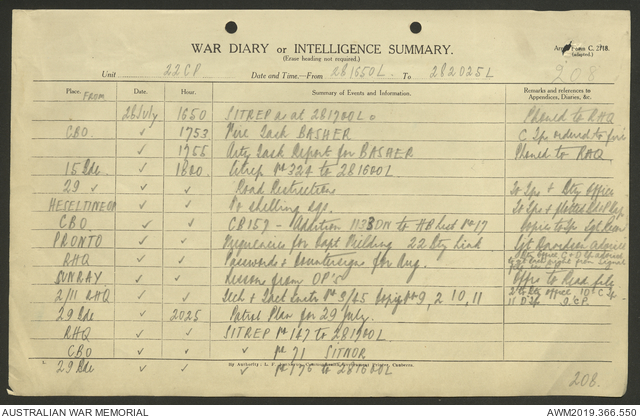 WAR DIARY or INTELLIGENCE SUMMARY.
(Erase heading not required.)
Army Form C. 2118.
(adapted.)
208
Unit 22 CP Date and Time—From 281650L To 282025L
Place. FROM Date. Hour. Summary of Events and Information. Remarks and references to Appendices, Diaries, &c.
28 July 1650 SITREP as at 281700L. Phoned to RHQ
CBO ✓ 1753 Fire Task BASHER C Tps ordered to fire
✓ 1755 Arty Task Report for BASHER Phoned to RHQ
15 Bde ✓ 1800 Sitrep No 324 to 281600L
29 ✓ ✓ ✓ Road Restrictions To Tps & Bty Office
HESELTINE ✓ ✓ shelling
CBO ✓ ✓ CB 159 - Addition 1133 DN to HB List No 17
PRONTO ✓ ✓ Frequencies for Capt Fielding 22 Bty Link Sgt Davidson advised
RHQ ✓ ✓ Passwords & Countersigns for Aug.
SUNRAY ✓ ✓ Lessons from OP's
2/11 RHQ ✓ ✓ Tech & Tact No 3/45 Copy No 9, 2 10, 11
29 Bde ✓ 2025 Patrol Plan for 29 July.
RHQ ✓ ✓ SITREP No 167 to 281700L
CBO ✓ ✓ ✓ No 71 SITNOR
29 Bde ✓ ✓ ✓ No 776 to 281600L
208.
AUSTRALIAN WAR MEMORIAL
AWM2019.366.550